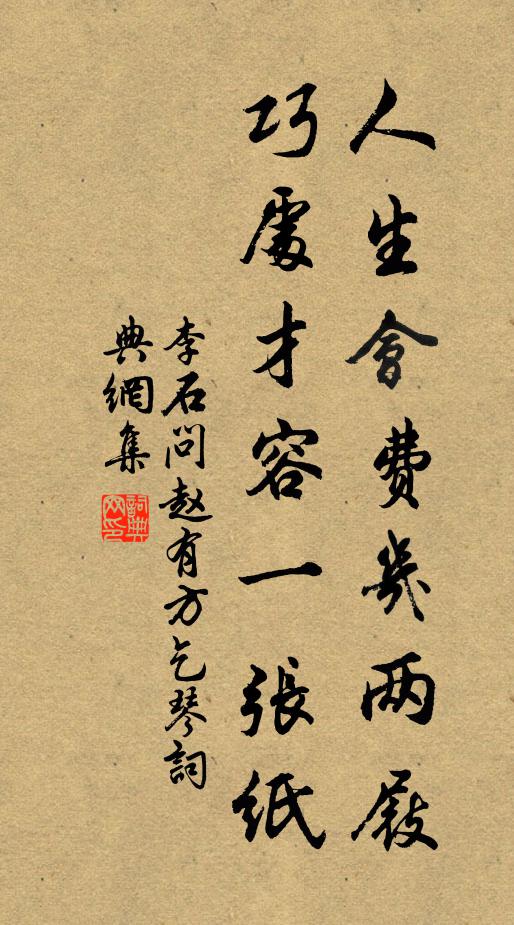 人生會費幾兩屐
巧處才容一張紙
李石問趙有方乞琴詞
典網集
詞典網印